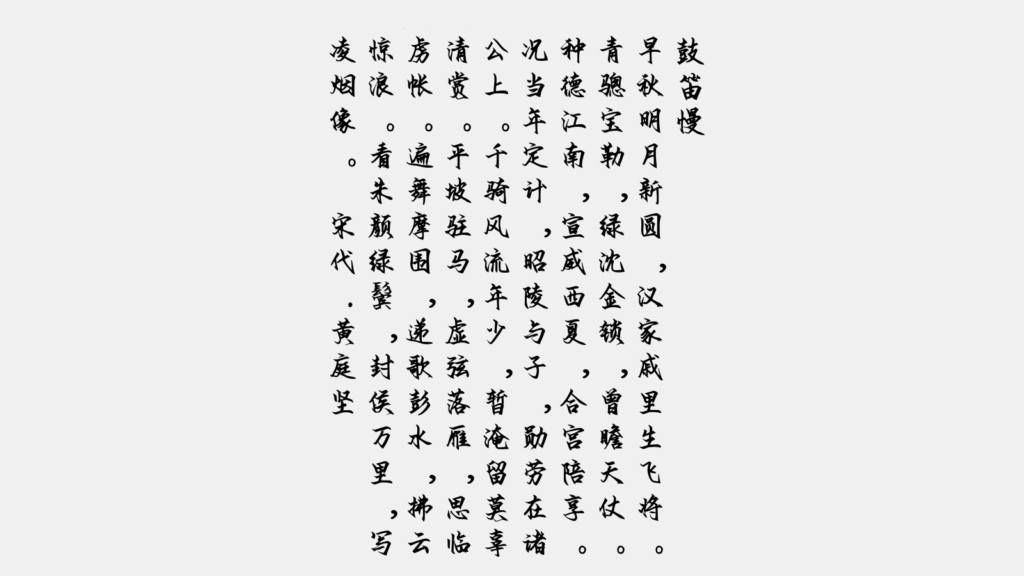 鼓笛慢
早秋明月新圆，汉家戚里生飞将。
青骢宝勒，绿沈金锁，曾瞻天仗。
种德江南，宣威西夏，合宫陪享。
况当年定计，昭陵与子，勋劳在诸
公上。千骑风流年少，暂淹留莫辜
清赏。平坡驻马，虚弦落雁，思临
虏帐。遍舞摩围，递歌彭水，拂云
惊浪。看朱颜绿鬓，封侯万里，写
凌烟像。
宋代.黄庭坚